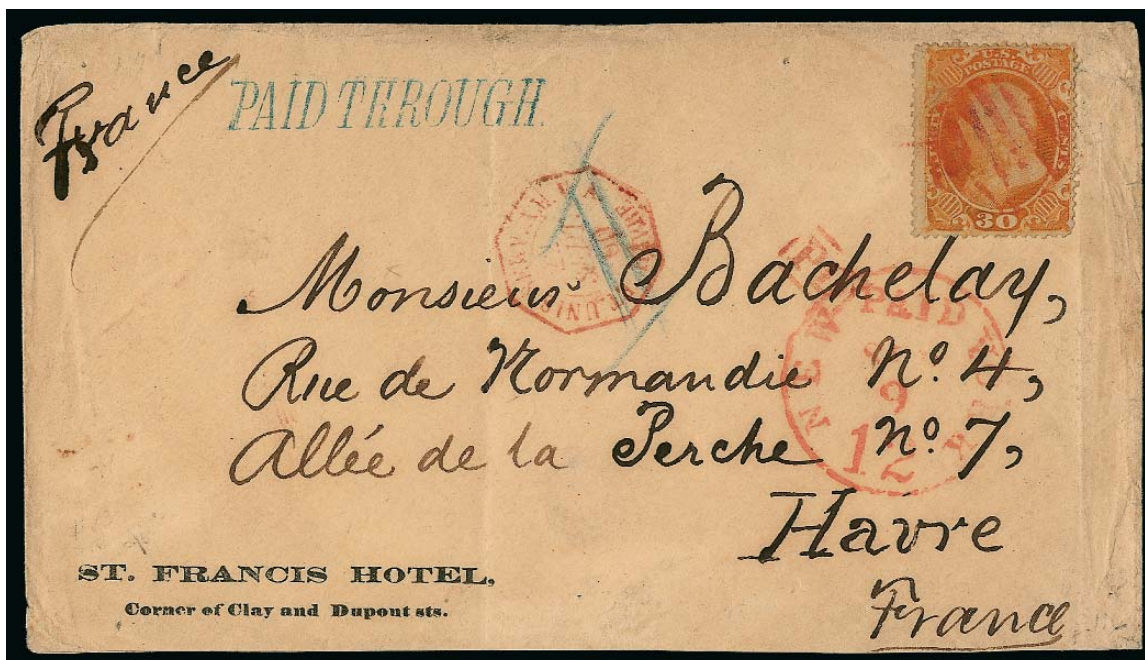 France
PAID THROUGH.
U.S.
POSTAGE
30
Monsieur Bachelay,
NEW PAID YORK
9
12
Rue de Normandie No. 4,
Allée de la Perche No. 7,
Havre
France
ST. FRANCIS HOTEL,
Corner of Clay and Dupont sts.